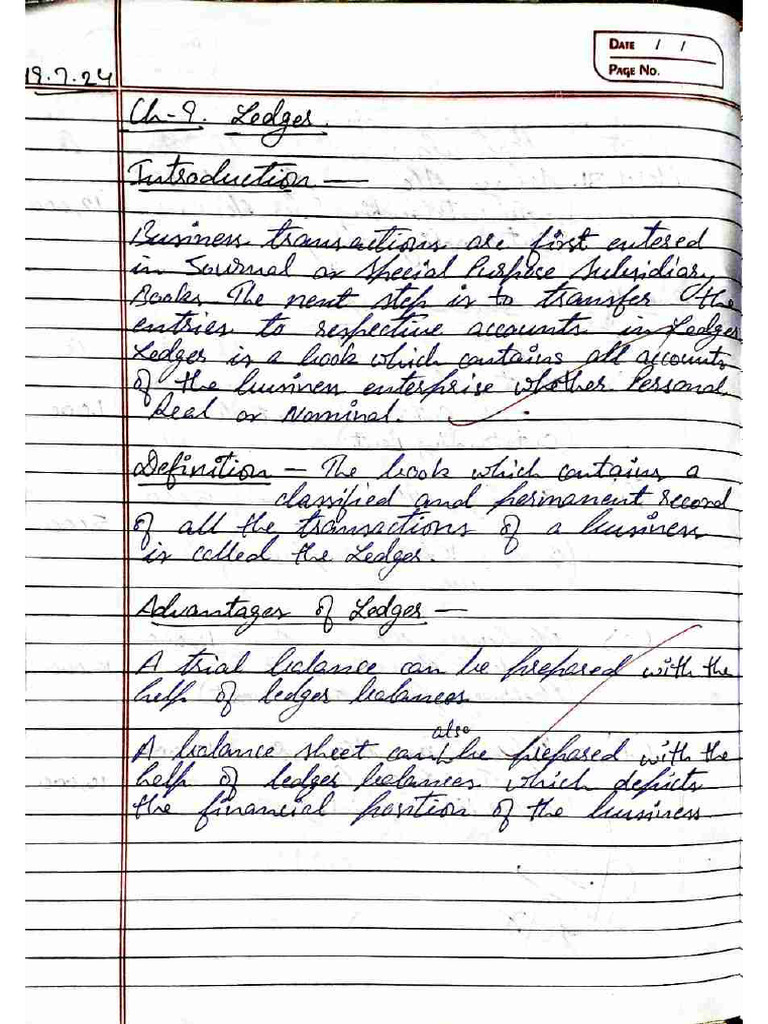 DATE / /
PAGE No.
19.7.24
Ch-9. Ledger.
Introduction —
Business transactions are first entered
in Journal or Special Purpose Subsidiary
Books. The next step is to transfer the
entries to respective accounts in Ledger
Ledger is a book which contains all accounts
of the business enterprise whether Personal
Real or Nominal.
Definition — The book which contains a
classified and permanent record
of all the transactions of a business
is called the Ledger.
Advantages of Ledger —
A trial balance can be prepared with the
help of ledger balances.
also
A balance sheet can be prepared with the
help of ledger balances which depicts
the financial position of the business